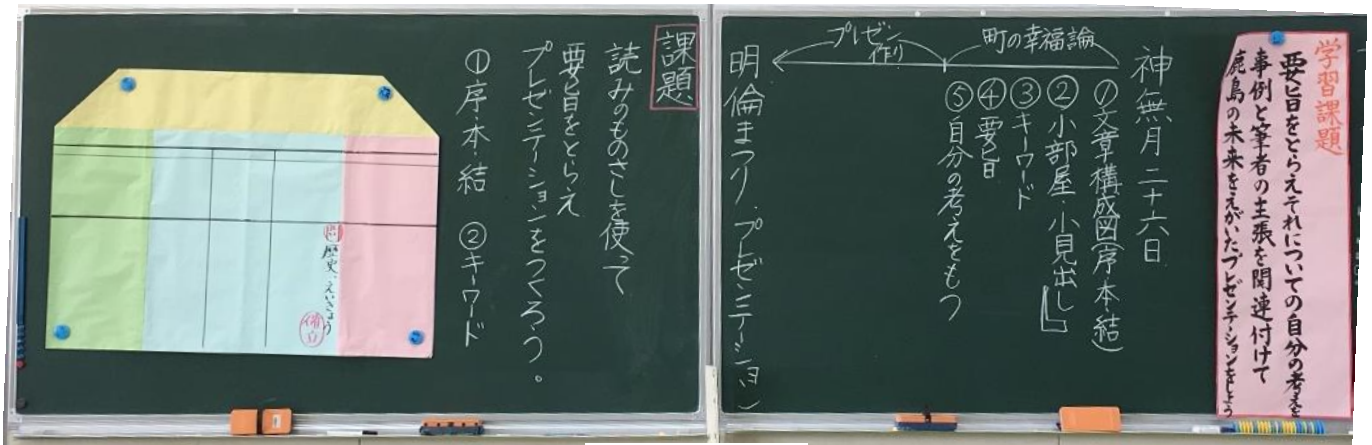 学習課題
要旨をとらえそれについての自分の考えを
事例と筆者の主張を関連付けて
鹿島の未来をえがいたプレゼンテーションをしよう
神無月二十六日
町の幸福論
プレゼン
作り
①文章構成図(序・本・結)
②小部屋・小見出し
③キーワード
④要旨
⑤自分の考えをもつ
明倫まつり・プレゼンテーション
課題
読みのものさしを使って
要旨をとらえ
プレゼンテーションをつくろう。
①序・本・結 ②キーワード
歴史、えいきょう